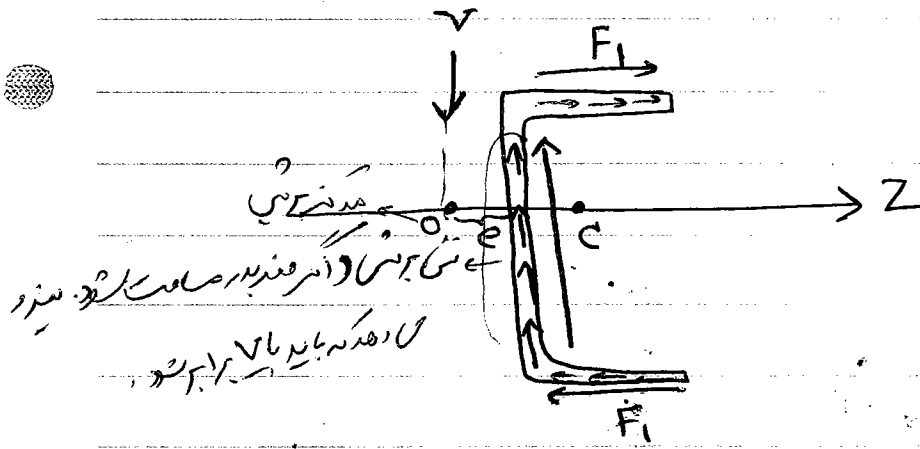 V
F₁
مرکز برشی
O
e
C
Z
تنش برشی اگر ضربدر مساحت شود. نیرو
می دهد که باید با V برابر شود.
F₁